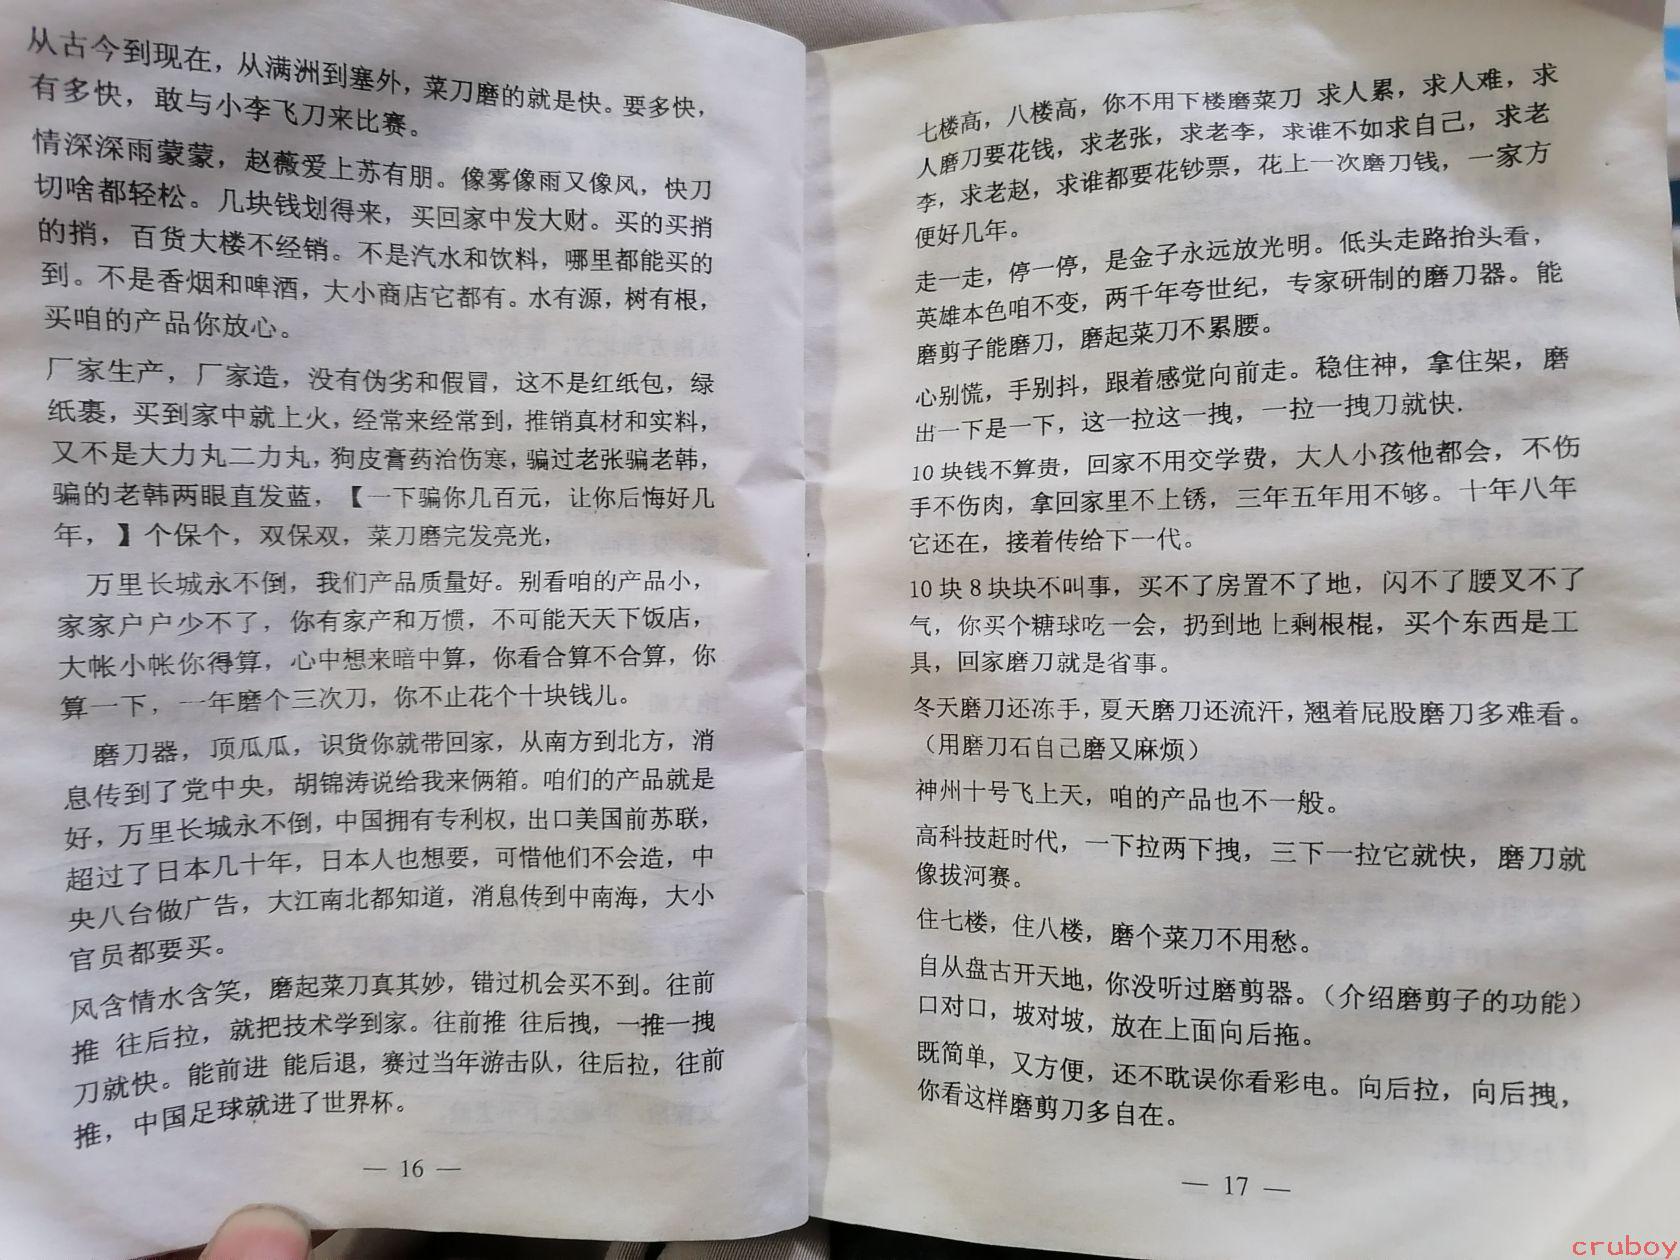 从古今到现在，从满洲到塞外，菜刀磨的就是快。要多快，
有多快，敢与小李飞刀来比赛。
情深深雨蒙蒙，赵薇爱上苏有朋。像雾像雨又像风，快刀
切啥都轻松。几块钱划得来，买回家中发大财。买的买捎
的捎，百货大楼不经销。不是汽水和饮料，哪里都能买的
到。不是香烟和啤酒，大小商店它都有。水有源，树有根，
买咱的产品你放心。
厂家生产，厂家造，没有伪劣和假冒，这不是红纸包，绿
纸裹，买到家中就上火，经常来经常到，推销真材和实料，
又不是大力丸二力丸，狗皮膏药治伤寒，骗过老张骗老韩，
骗的老韩两眼直发蓝，【一下骗你几百元，让你后悔好几
年，】个保个，双保双，菜刀磨完发亮光，
万里长城永不倒，我们产品质量好。别看咱的产品小，
家家户户少不了，你有家产和万惯，不可能天天下饭店，
大帐小帐你得算，心中想来暗中算，你看合算不合算，你
算一下，一年磨个三次刀，你不止花个十块钱儿。
磨刀器，顶瓜瓜，识货你就带回家，从南方到北方，消
息传到了党中央，胡锦涛说给我来俩箱。咱们的产品就是
好，万里长城永不倒，中国拥有专利权，出口美国前苏联，
超过了日本几十年，日本人也想要，可惜他们不会造，中
央八台做广告，大江南北都知道，消息传到中南海，大小
官员都要买。
风含情水含笑，磨起菜刀真其妙，错过机会买不到。往前
推 往后拉，就把技术学到家。往前推 往后拽，一推一拽
刀就快。能前进 能后退，赛过当年游击队，往后拉，往前
推，中国足球就进了世界杯。
— 16 —
七楼高，八楼高，你不用下楼磨菜刀 求人累，求人难，求
人磨刀要花钱，求老张，求老李，求谁不如求自己，求老
李，求老赵，求谁都要花钞票，花上一次磨刀钱，一家方
便好几年。
走一走，停一停，是金子永远放光明。低头走路抬头看，
英雄本色咱不变，两千年夸世纪，专家研制的磨刀器。能
磨剪子能磨刀，磨起菜刀不累腰。
心别慌，手别抖，跟着感觉向前走。稳住神，拿住架，磨
出一下是一下，这一拉这一拽，一拉一拽刀就快.
10 块钱不算贵，回家不用交学费，大人小孩他都会，不伤
手不伤肉，拿回家里不上锈，三年五年用不够。十年八年
它还在，接着传给下一代。
10 块 8 块块不叫事，买不了房置不了地，闪不了腰叉不了
气，你买个糖球吃一会，扔到地上剩根棍，买个东西是工
具，回家磨刀就是省事。
冬天磨刀还冻手，夏天磨刀还流汗，翘着屁股磨刀多难看。
（用磨刀石自己磨又麻烦）
神州十号飞上天，咱的产品也不一般。
高科技赶时代，一下拉两下拽，三下一拉它就快，磨刀就
像拔河赛。
住七楼，住八楼，磨个菜刀不用愁。
自从盘古开天地，你没听过磨剪器。（介绍磨剪子的功能）
口对口，坡对坡，放在上面向后拖。
既简单，又方便，还不耽误你看彩电。向后拉，向后拽，
你看这样磨剪刀多自在。
— 17 —
cruboy